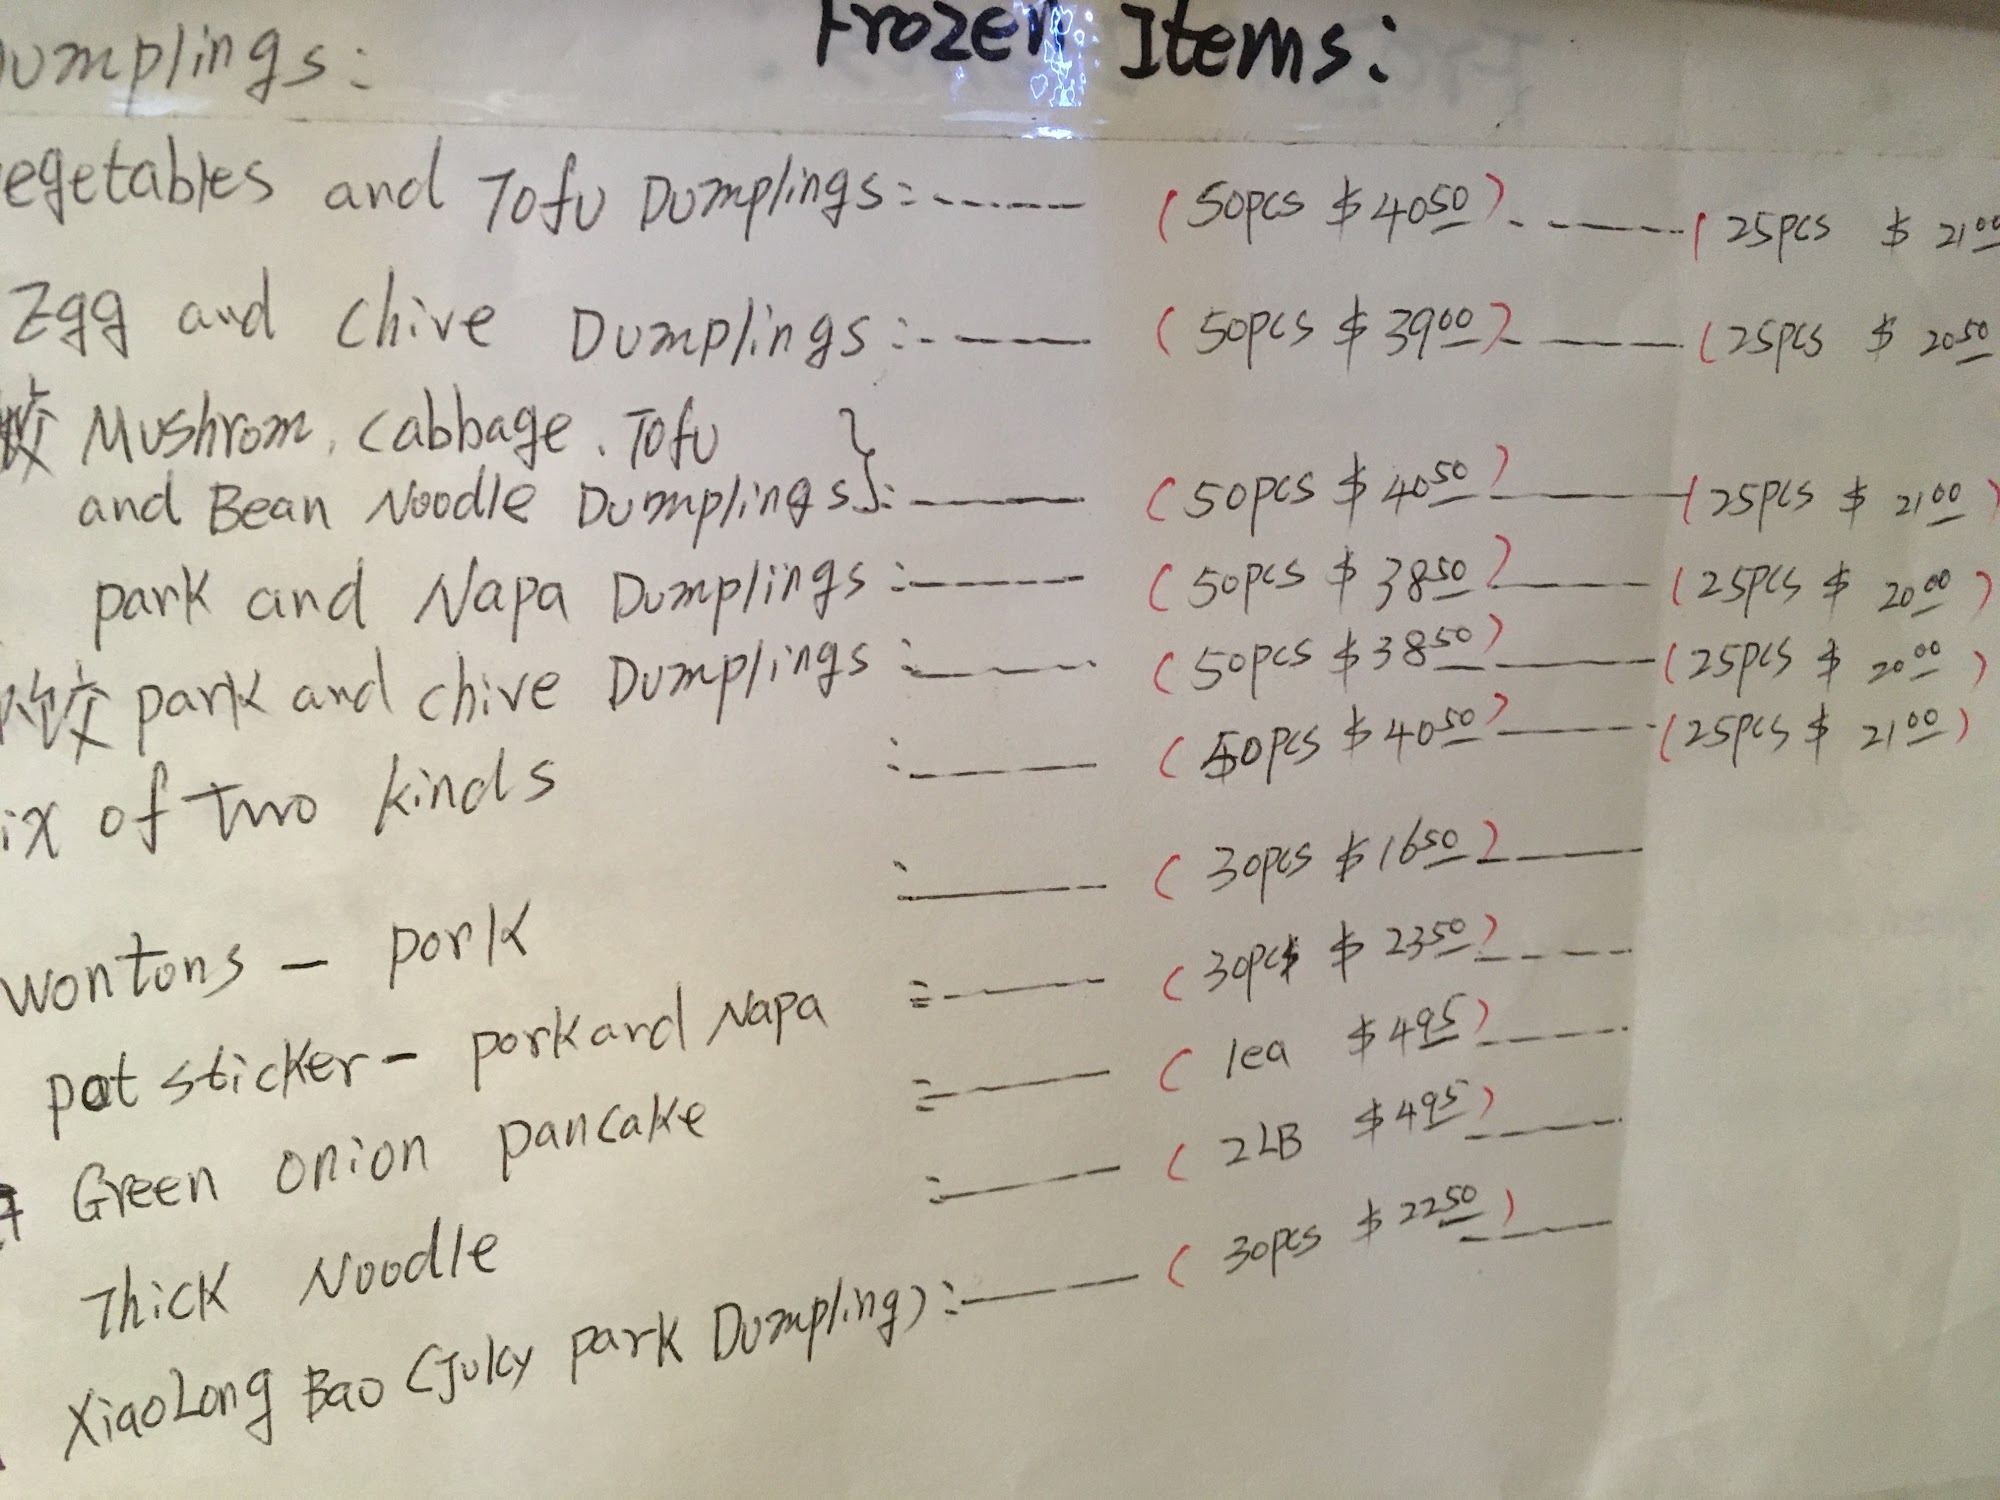 Frozen Items:
Dumplings:
Vegetables and Tofu Dumplings: (50pcs $40.50) (25pcs $21.00
Egg and Chive Dumplings: (50pcs $39.00) (25pcs $20.50
饺 Mushrom, Cabbage, Tofu
and Bean Noodle Dumplings: (50pcs $40.50) (25pcs $21.00)
park and Napa Dumplings: (50pcs $38.50) (25pcs $20.00)
饺 park and chive Dumplings: (50pcs $38.50) (25pcs $20.00)
ix of Two kinds : (50pcs $40.50) (25pcs $21.00)
wontons - pork : (30pcs $16.50)
pot sticker - pork and Napa : (30pcs $23.50)
Green onion pancake : (1ea $4.95)
Thick Noodle : (2LB $4.95)
XiaoLong Bao (Juky park Dumpling): (30pcs $22.50)